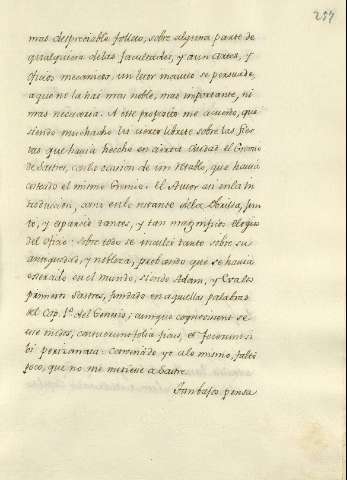 257
mas despreciable folleto, sobre alguna parte de
qualquiera de las facultades, y aun artes, y
oficios mecanicos, un letor novicio se persuade,
a que no la hai mas noble, mas importante, ni
mas necesaria. A este proposito me acuerdo, que
siendo muchacho lei cierto librete sobre las fies-
tas que havia hecho en cierta Ciudad el Gremio
de Sastres, con la ocasion de un retablo, que havia
costeado el mismo Gremio. El Autor asi en la In-
troduccion, como en lo restante de la obrilla, jun-
tó, y esparció tantos, y tan magnificos elogios
del oficio: sobre todo se inculcó tanto sobre su
antiguedad, y nobleza, probando que se havia
estrenado en el mundo, siendo Adam, y Eva los
primeros Sastres, fundado en aquellas palabras
del Cap. 3º. del Genesis: cumque cognovissent se
esse nudos, consuerunt folia ficus, et fecerunt si-
bi perizomata: coronando yo a lo mismo, faltó
poco, que no me metiese a Sastre.
Tan bajos pensa